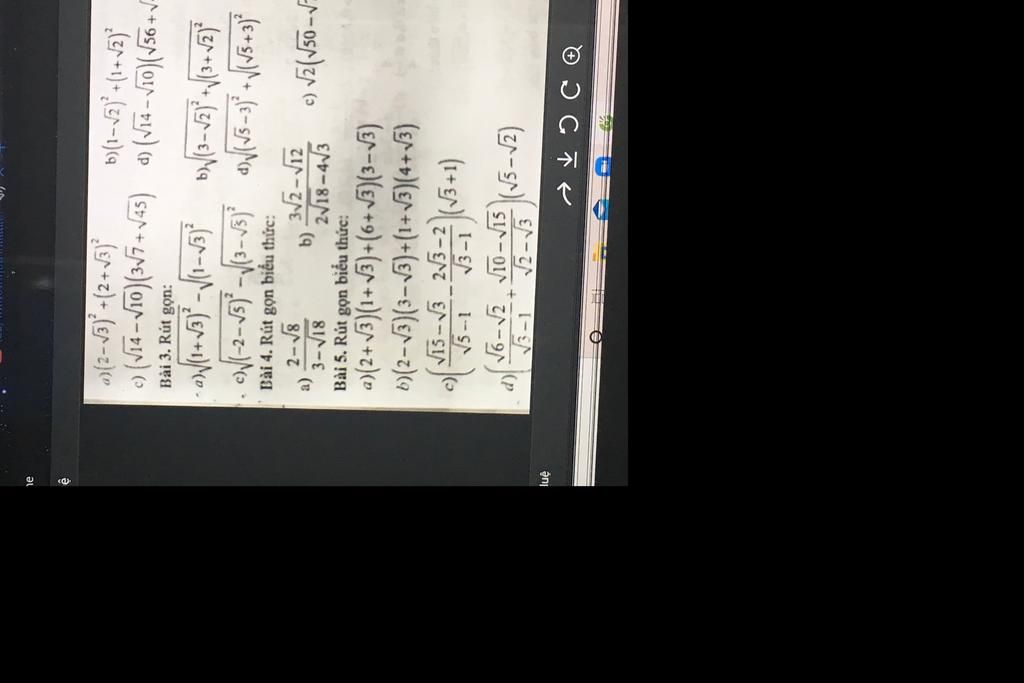 a) (2-√3)² + (2+√3)² b) (1-√2)² + (1+√2)²
c) (√14-√10)(3√7+√45) d) (√14-√10)(√56+√
Bài 3. Rút gọn:
a) √(1+√3)² - √(1-√3)² b) √(3-√2)² + √(3+√2)²
c) √(-2-√5)² - √(3-√5)² d) √(√5-3)² + √(√5+3)²
Bài 4. Rút gọn biểu thức:
a) (2-√8)/(3-√18) b) (3√2-√12)/(2√18-4√3) c) √2(√50-√
Bài 5. Rút gọn biểu thức:
a) (2+√3)(1+√3)+(6+√3)(3-√3)
b) (2-√3)(3-√3)+(1+√3)(4+√3)
c) ((√15-√3)/(√5-1) - (2√3-2)/(√3-1))(√3+1)
d) ((√6-√2)/(√3-1) + (√10-√15)/(√2-√3))(√5-√2)